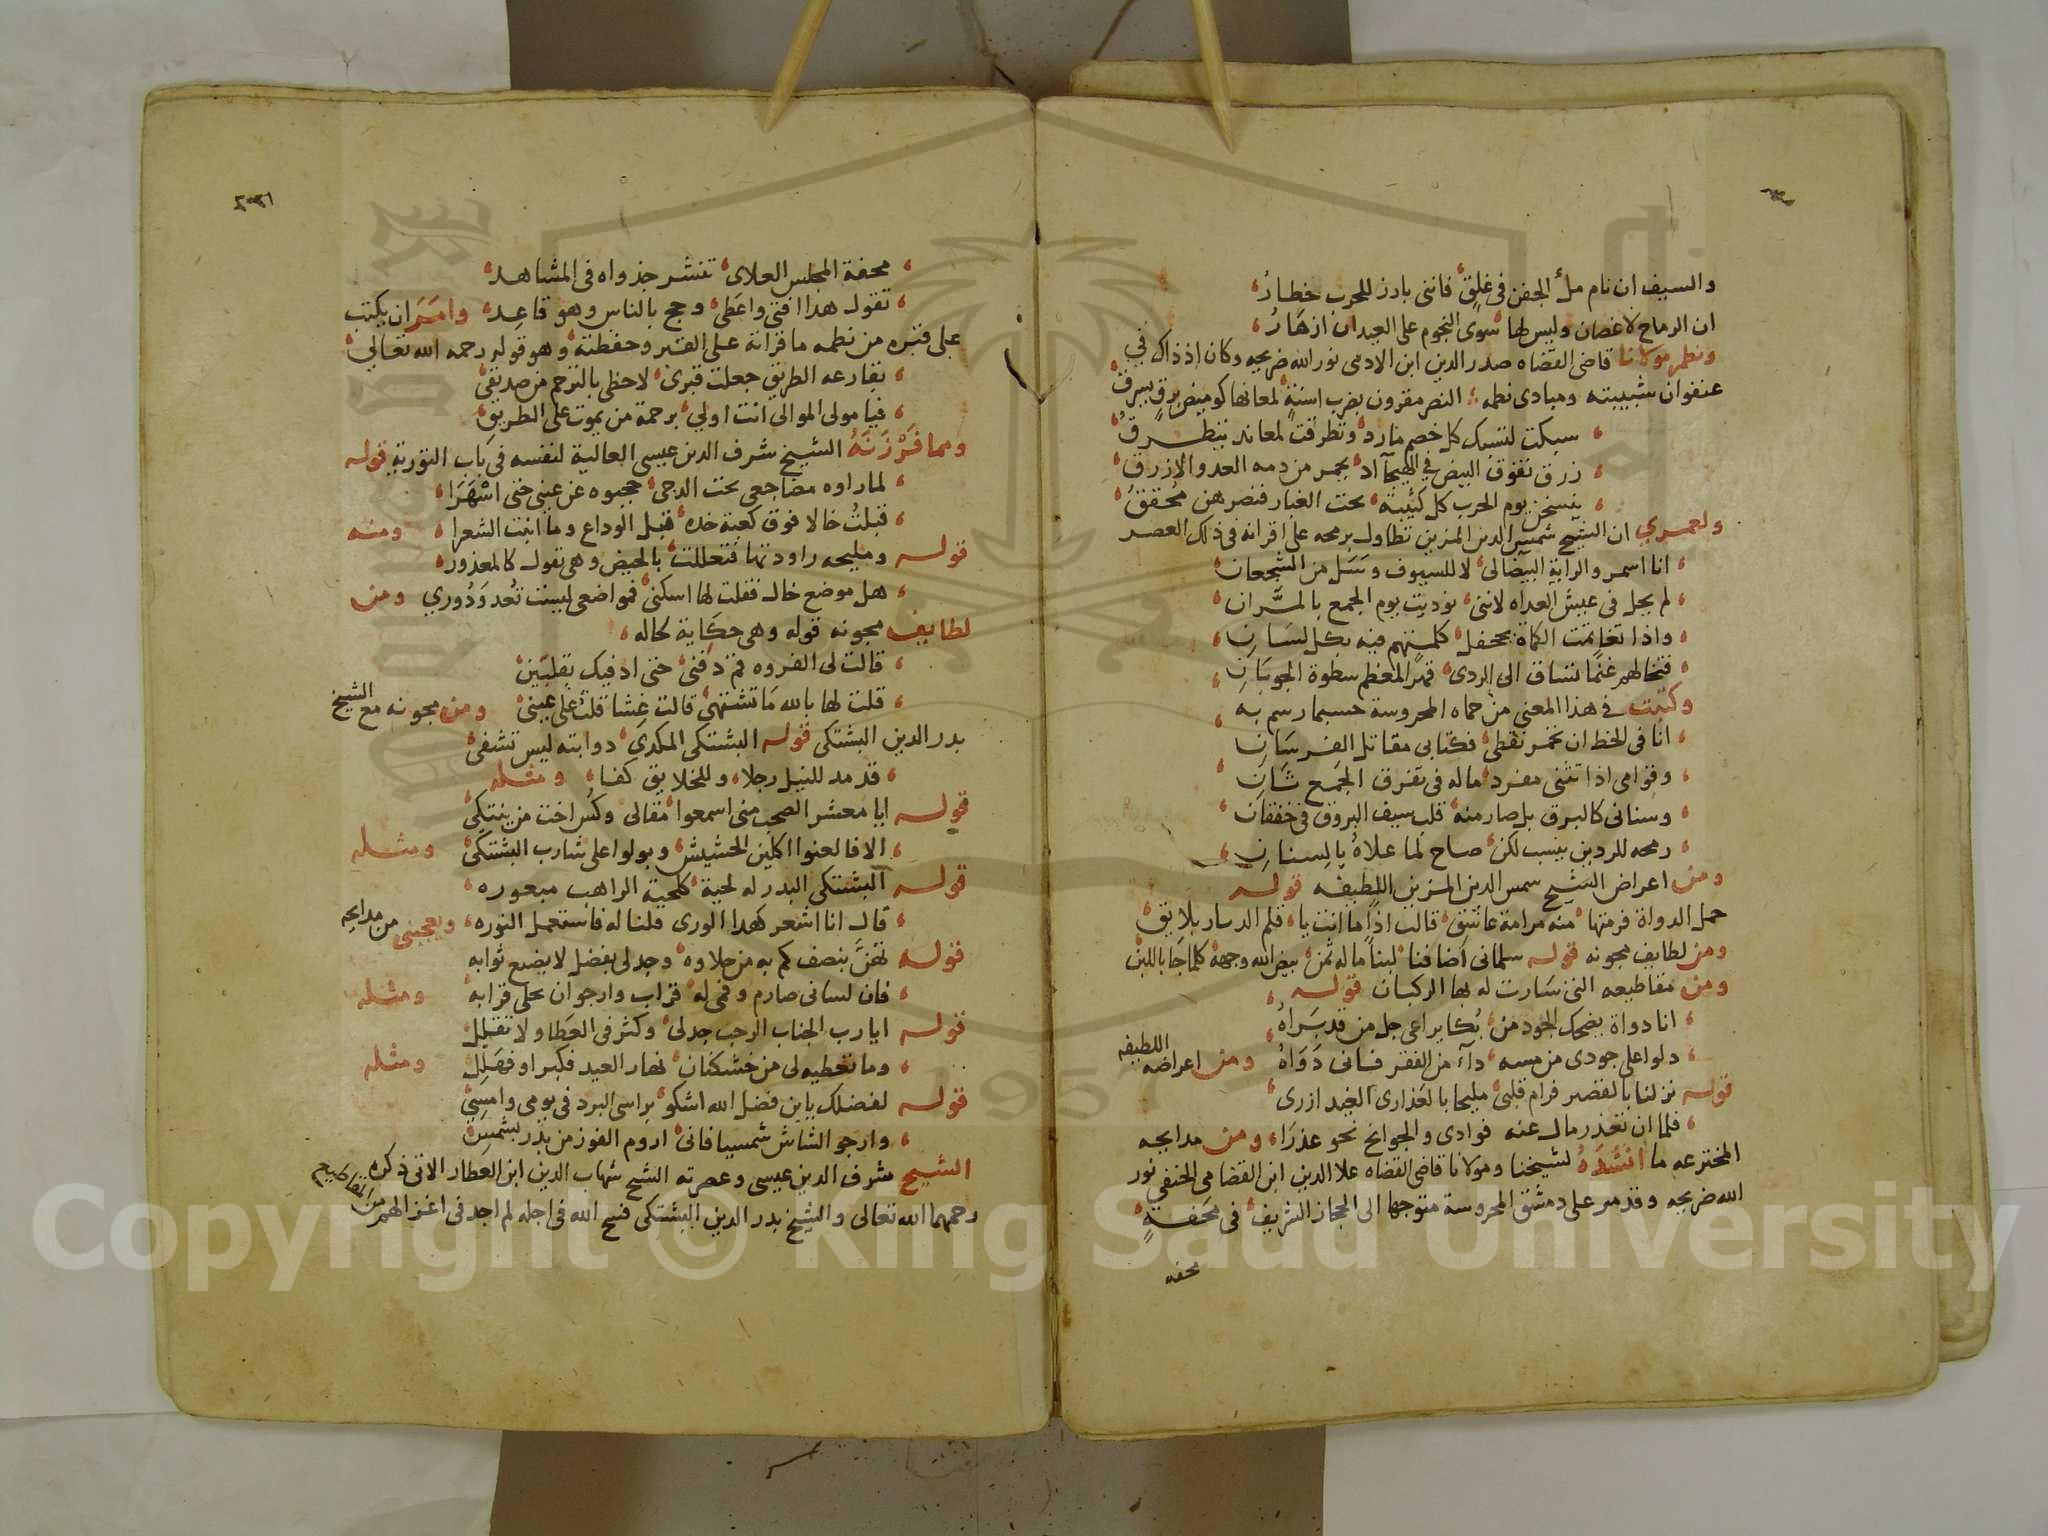 والسيف ان نام ملأ الجفن في غلق فانني بارز للحرب خطار
ان الرماح لاغصان وليس لها سوى النجوم على العيدان ازهار
ونظم مولانا قاضى القضاه صدر الدين ابن الادمى نور الله ضريحه وكان اذ ذاك في
عنفوان شبيبته ومبادى نظمه النصر مقرون بضرب اسنة لمعانها كوميض برق يبرق
سبكت لتسبك كل خصم مارد وتطرقت لمعاند يتطرق
زرق تفوق البيض في الهيجآ اذ يحمر من دمه العدو الازرق
ينسخن يوم الحرب كل كتيبة تحت الغبار فنصرهن محقق
ولعمري ان الشيخ شمس الدين المزين تطاول برمحه على اقرانه في ذلك العصر
انا اسمر والراية البيضا لى لا للسيوف وسل من الشجعان
لم يحل في عيش العداه لاننى نوديت يوم الجمع بالمران
واذا تغاتمت الكماة بجحفل كلمتهم فيه بكل لسان
فتخالهم غنما تساق الى الردى قهرا لمعظم سطوة الجوبان
وكتبت في هذا المعنى من حماه المحروسة حسبما رسم به
انا في الخط ان تحمر نقطى فكتابى مقاتل الفرسان
وقوامى اذا تثنى مفرد ماله في تفرق الجمع ثان
وسنانى كالبرق بل صار منه قلب سيف البروق في خفقان
رمحه للردين ينسب لكن صاح لما علاه يا لسنان
ومن اعراض الشيخ شمس الدين المزين اللطيفه قوله
حمل الدواة فرمتها منه مرامة عاشق قالت اذا ما انت يا قلم الدسار بلايق
ومن لطايف مجونه قوله سلمانى اضافنا لبنا ماله ثمن بيض الله وجهه كلما جا باللبن
ومن مقاطيعه التى سارت له بها الركبان قوله
انا دواة يضحك الجود من بكا يراعى جل من قد براه
دلوا على جودى من مسه دآء من الفقر فانى دواه ومن اعراضه اللطيفه
قوله نزلنا بالقصير فرام قلبى مليحا بالعذارى الغيد ازرى
فلما ان تعذر مال عنه فوادى والجوانح نحو عذرا ومن مدايحه
المخترعه ما انشده لشيخنا ومولانا قاضى القضاه علا الدين ابن القضامى الحنفي نور
الله ضريحه وقد مر على دمشق المحروسة متوجها الى الحجاز الشريف في محفة
محفة
محفة المجلس العلاى تنشر جدواه في المشاهد
تقول هدا افتى واعطى وحج بالناس وهو قاعد وامر ان يكتب
على قبره من نظمه ما قراته على القبر وحفظته وهو قوله رحمه الله تعالى
بقارعه الطريق جعلت قبرى لاحظى بالترحم من صديقى
فيا مولى الموالى انت اولى برحمة من يموت على الطريق
ومما قررته الشيخ شرف الدين عيسى العالية لنفسه في باب التورية قوله
لما راوه مضاجعى تحت الدجى حجبوه عن عينى حتى اشهرا
قبلت خالا فوق كعبة خده قبل الوداع وما انبت الشعرا ومنه
قوله ومليحه راودتها فتعللت بالحيض وهى تقول كالمعذور
هل موضع خال فقلت لها اسكنى فمواضعى ليست تعد ودورى ومن
لطايف مجونه قوله وهى حكاية لحاله
قالت لى الفروه قم دفنى حتى ادفيك بقلبين
قلت لها بالله ما تشتهى قالت غشا قلت على عينى ومن مجونه مع الشيخ
بدر الدين البشتكى قوله البشتكى المكدى دوابته ليس تشفى
قد مد للنيل رجلا وللخلايق كفا ومثله
قوله ايا معشر الصحب منى اسمعوا مقالى وكس اخت من ينتكى
الا فالعنوا اكلين الحشيش وبولوا على شارب البشتكى ومثله
قوله البشتكى البدر له لحية كلحية الراهب مبعوره
قال انا اشعر كهدا الورى قلنا له فاستعمل النوره ويعجبنى من مدايحه
قوله تهن بنصف كم به من حلاوه وجد لى بفضل لا يضيع ثوابه
فان لسانى صارم وفمى له قراب وارجو ان يحلى قرابه ومثله
قوله ايا رب الجناب الرحب جد لى وكثر في العطا ولا تقلل
وما تعطيه لى من خشكنان نهار العيد فكبر او فهلل ومثله
قوله لفضلك يا بن فضل الله اشكو براسى البرد في يومى وامسى
وارجو الشاش شمسيا فانى اروم الفوز من بدر بشمس
الشيخ شرف الدين عيسى وعصرته الشيخ شهاب الدين ابن العطار الاتى ذكره
رحمهما الله تعالى والشيخ بدر الدين البشتكى فسح الله في اجله لم اجد في اغزالهم من التفاكيم
Copyright © King Saud University
1957